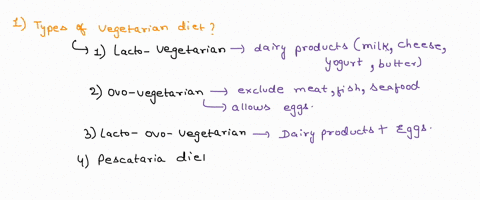 1) Types of vegetarian diet?
↳ 1) Lacto-vegetarian → dairy products (milk, cheese,
yogurt, butter)
2) Ovo-vegetarian → exclude meat, fish, seafood
↳ allows eggs.
3) Lacto-ovo-vegetarian → Dairy products + Eggs.
4) Pescataria diet